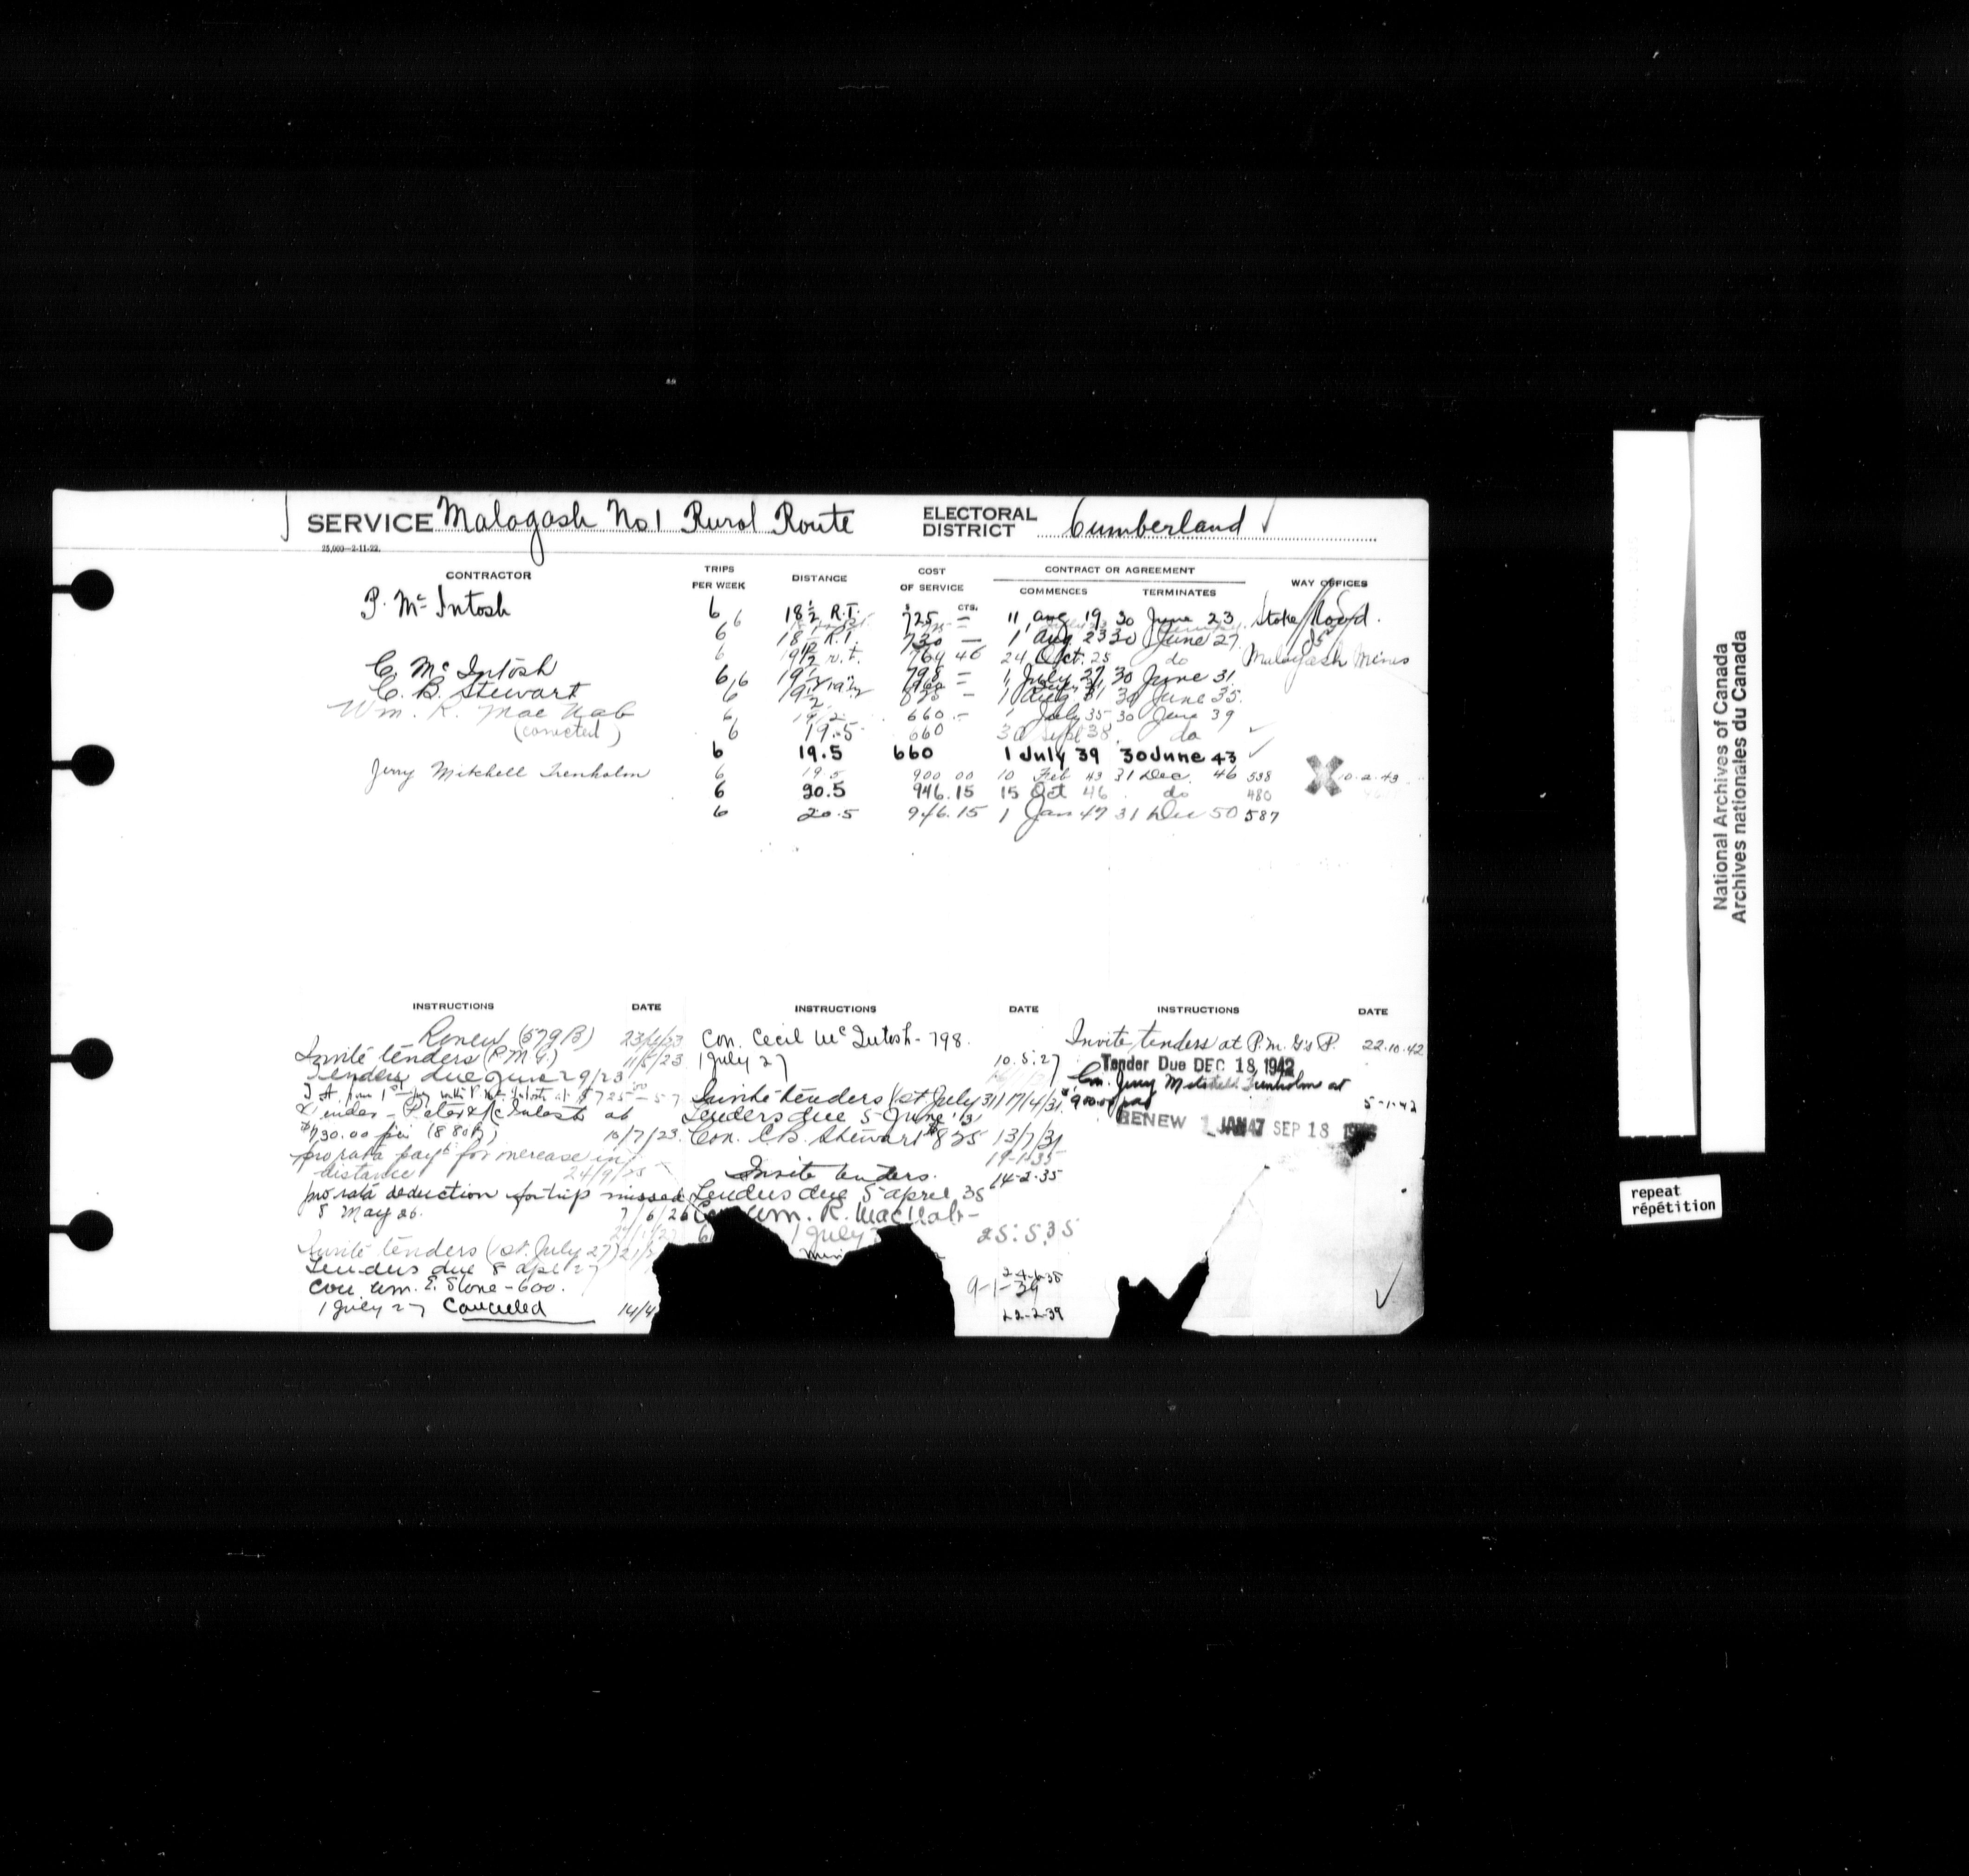 SERVICE Malagash No 1 Rural Route ELECTORAL DISTRICT Cumberland
25,000—2-11-22.
CONTRACTOR TRIPS PER WEEK DISTANCE COST OF SERVICE CONTRACT OR AGREEMENT COMMENCES TERMINATES WAY OFFICES
$ CTS.
P. McIntosh 6 18½ R.T. 725 — 11 Aug 19 30 June 23 Stake Road.
6 18½ R.T. 730 — 1 Aug 23 30 June 27
6 19½ r.t. 764 46 24 Oct. 25 do Malagash Mines
C. McIntosh 6 19½ 798 — 1 July 27 30 June 31
C. B. Stewart 6 19½ 825 — 1 Aug 31 30 June 35.
Wm. R. MacNab 6 19½ 660 — 1 July 35 30 June 39
(corrected) 6 19.5 660 30 Sept 38 do
6 19.5 660 1 July 39 30 June 43
Jerry Mitchell Trenholm 6 19.5 900 00 10 Feb 43 31 Dec. 46 538 10-2-43
6 20.5 946.15 15 Oct 46 do 480
6 20.5 946.15 1 Jan 47 31 Dec 50 587
INSTRUCTIONS DATE
Renew (579 B)
Invite tenders (P.M.G.) 11/5/23
Tenders due June 29/23
Tender - Peter McIntosh at
$730.00 pa (880B) 10/7/23
pro rata payt for increase in
distance 24/9/25
pro rata deduction for trip missed
8 May 26. 7/6/26
Invite tenders (1st. July 27)
Tenders due 8 Apl 27
Con. Wm. E. Stone - 600.
1 July 27 Cancelled 14/4
INSTRUCTIONS DATE
Con. Cecil McIntosh - 798.
1 July 27 10.5.27
Invite tenders 1st July 31 17/4/31
Tenders due 5 June '31
Con. C.B. Stewart $825 13/7/31
19-1-35
Invite tenders. 14-2-35
Tenders due 5 April 35
Wm. R. MacNab -
1 July 25.5.35
9-1-39
22-2-39
INSTRUCTIONS DATE
Invite tenders at P.M.G's P. 22.10.42
Tender Due DEC 18 1942
Con. Jerry Mitchell Trenholm at
$900.00 pa 5-1-43
RENEW 1 JAN 47 SEP 18
National Archives of Canada
Archives nationales du Canada
repeat
répétition